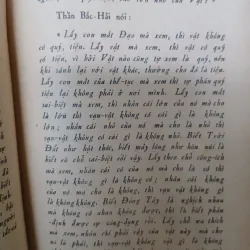 Thần Bắc-Hải nói :
« Lấy con mắt Đạo mà xem, thì vật không có
quý, tiện. Lấy vật mà xem, thì vật có quý, có
tiện, vì bởi Vật nào cũng tự xem là quý, nên
khi sánh lại với vật khác, thường cho đó là tiện.
Lấy con mắt của thế-tục mà xem thì sự phân quý
tiện không phải ở nơi mình. Lấy chỗ sai-biệt
mà xem, thì nhân cái lớn của nó mà cho
là lớn thì vạn-vật không có cái gì là không
lớn; nhân cái nhỏ của nó mà cho là nhỏ thì
vạn-vật không có cái gì là không nhỏ. Biết Trời
Đất như hột thóc, biết mảy lông như hòn núi là
biết cỗ chế sai-biệt vậy. Lấy theo chỗ công-ích
mà xem, nhân cái có của nó mà cho là có thì
vạn-vật không gì là không có; nhân cái không
của nó mà cho là không, thì vạn vật không gì
là không không. Biết Đông Tây là nghịch nhau
mà không có nhau không được, thì là biết phân
định được sự công-dụng rồi. Lấy chỗ ưa thích
mà xem, nhân cái phải của nó mà cho
là phải, thì vạn-vật không gì là không